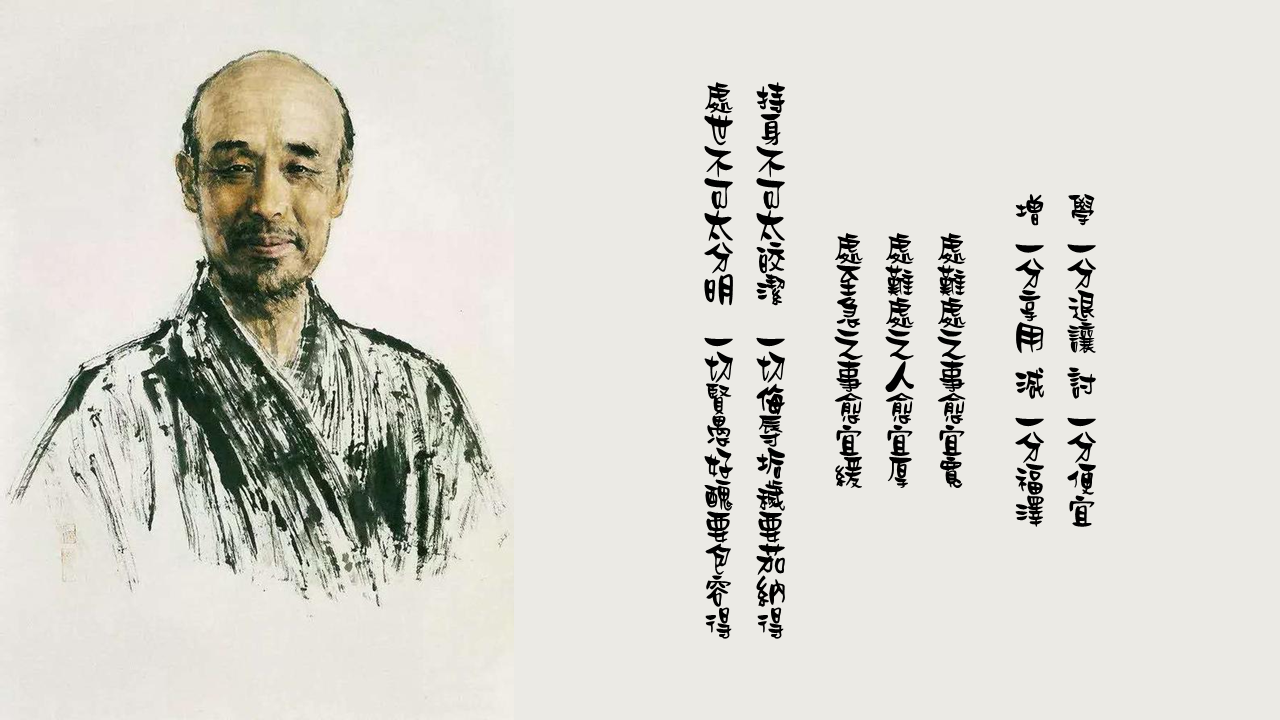 學 一分退讓 討 一分便宜
增 一分享用 減 一分福澤
處難處之事愈宜寬
處難處之人愈宜厚
處至急之事愈宜緩
持身不可太皎潔 一切侮辱垢穢要茹納得
處世不可太分明 一切賢愚好醜要包容得